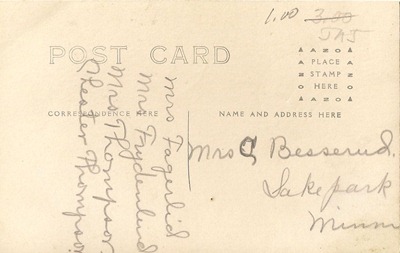 1.00 3.00
JAJ
POST CARD
AZO
PLACE
STAMP
HERE
AZO
CORRESPONDENCE HERE
NAME AND ADDRESS HERE
Mrs Fagerlid
Mrs Frydenlund
Mrs Thompson
Chester Thompson
Mrs C Besserud.
Lake park
Minn